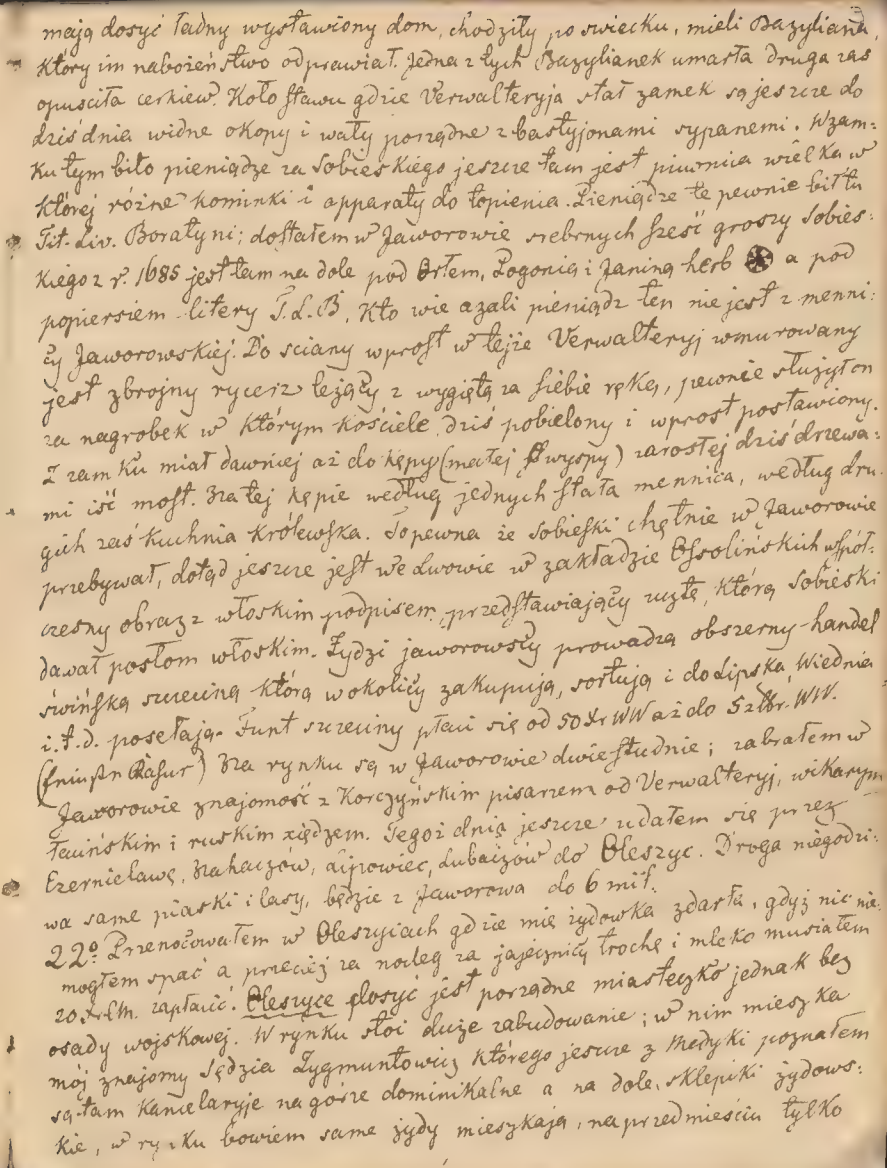 mają dosyć ładny wystawiony dom, chodziły po swiecku, mieli Bazyliana,
który im nabożeństwo odprawiał. Jedna z tych Bazylianek umarła druga zas
opuscila cerkiew. Koło stawu gdzie Verwalteryja stał zamek są jeszcze do
dziś dnia widne okopy i wały porządne z bastyjonami sypanemi. W zam:
ku tym bito pieniądze za Sobieskiego jeszcze tam jest piwnica wielka w
której różne kominki i apparaty do topienia. Pieniądze te pewnie bił tu
Tit. Liv. Boratyni; dostałem w Jaworowie srebrnych sześć groszy Sobies:
kiego z r. 1685 jest tam na dole pod Orłem, Pogonią i Janiną herb a pod
popiersiem litery T. L. B. Kto wie azali pieniądz ten nie jest z menni:
cy Jaworowskiéj. Do sciany wprost w tejże Verwalteryj wmurowany
jest zbrojny rycerz leżący z wygiętą za siebie ręką, pewnie służył on
za nagrobek w którym kościele dziś pobielony i wprost postawiony.
Z zamku miał dawniej aż do kępy (małej wyspy) zarosłej dziś drzewa:
mi iść most. Na tej kępie według jednych stała mennica, według dru
gich zaś kuchnia królewska. To pewna że Sobieski chętnie w Jaworowie
przebywał, dotąd jeszcze jest we Lwowie w zakładzie Ossolińskich wspól:
czesny obraz z włoskim podpisem, przedstawiający ucztę, którą Sobieski
dawał posłom włoskim. Żydzi jaworowscy prowadzą obszerny handel
świńską szczeciną którą w okolicy zakupują, sortują i do Lipska, Wiednia
i. t. d. posełają. Funt szczeciny płaci się od 50 Xr WW aż do WW.
Na rynku są w Jaworowie dwie studnie; zabrałem w
Jaworowie znajomość z Korczyńskim pisarzem od Verwalteryj, wikarym
łacińskim i ruskim xiędzem. Tegoż dnia jeszcze udałem się przez
Czerniławę, Nahaczów, Lubaczów do Oleszyc. Droga niegodzi:
wa same piaski i lasy, będzie z Jaworowa do 6 mil.
22º Przenocowałem w Oleszycach gdzie mię żydowka zdarła, gdyż nic nie
mogłem spać a przecież za nocleg za jajecznicę trochę i mleko musiałem
20 Xr CM. zapłacić. Oleszyce dosyć jest porządne miasteczko jednak bez
osady wojskowej. W rynku stoi duże zabudowanie; w nim mieszka
mój znajomy Sędzia Zygmuntowicz którego jeszcze z Medyki poznałem
są tam kancelaryje na górze dominikalne a na dole sklepiki żydows:
kie, w rynku bowiem same żydy mieszkają, na przedmieściu tylko